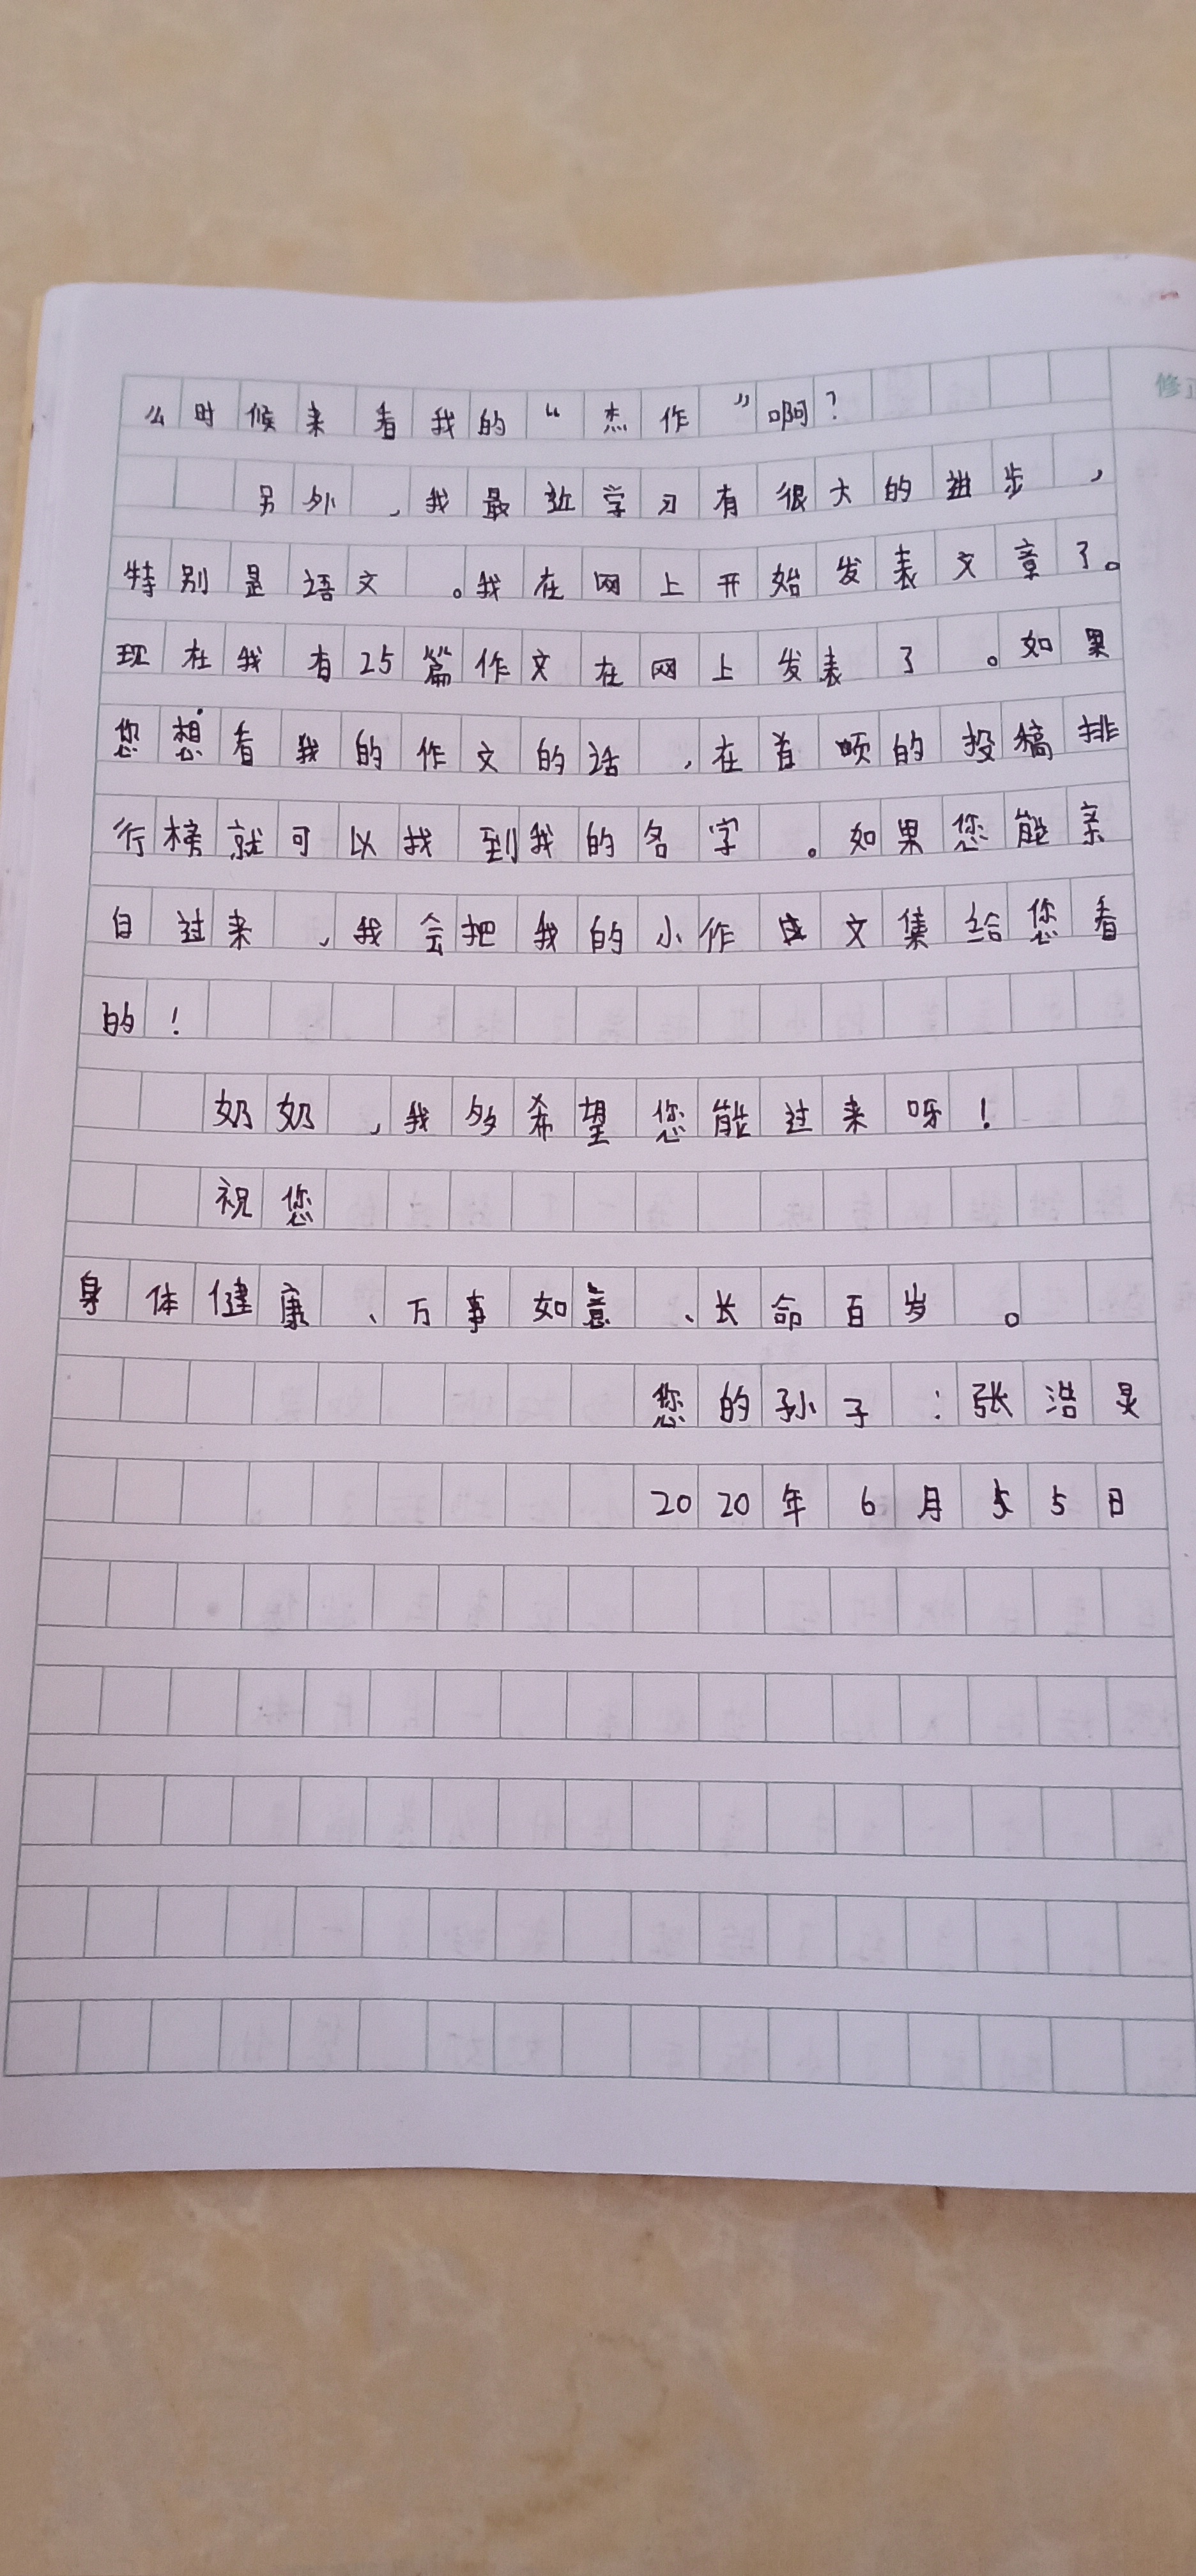 么时候来看我的“杰作”啊？
另外，我最近学习有很大的进步，
特别是语文。我在网上开始发表文章了。
现在我有25篇作文在网上发表了。如果
您想看我的作文的话，在首页的投稿排
行榜就可以找到我的名字。如果您能亲
自过来，我会把我的小作文集给您看
的！
奶奶，我多希望您能过来呀！
祝您
身体健康、万事如意、长命百岁。
您的孙子：张浩灵
2020年6月5日